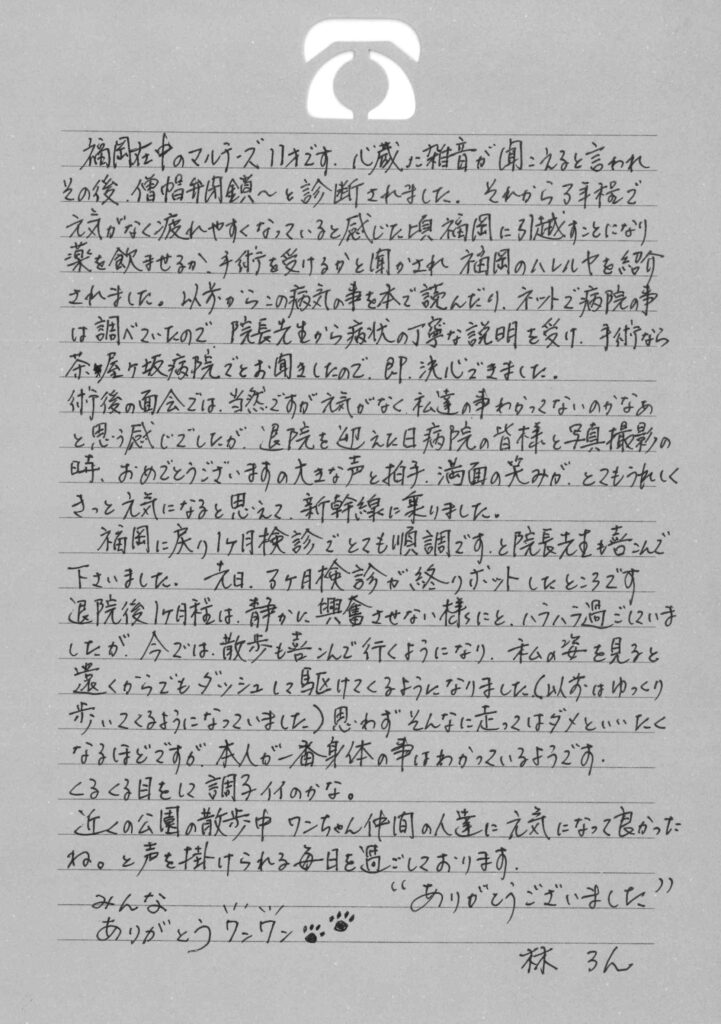 福岡在中のマルチーズ11才です. 心蔵に雑音が聞こえると言われ
その後、僧帽弁閉鎖〜と診断されました. それから3年程で
元気がなく疲れやすくなっていると感じた頃 福岡に引越すことになり
薬を飲ませるか、手術を受けるかと聞かされ 福岡のハレルヤを紹介
されました。以前からこの病気の事を本で読んだり、ネットで病院の事
は調べていたので、院長先生から病状の丁寧な説明を受け、手術なら
茶屋ヶ坂病院でとお聞きしたので、即、決心できました.
術後の面会では、当然ですが元気がなく、私達の事わかってないのかなぁ
と思う感じでしたが、退院を迎えた日病院の皆様と写真撮影の
時、おめでとうございますの大きな声と拍手、満面の笑みが、とてもうれしく
きっと元気になると思えて、新幹線に乗りました。
福岡に戻り1ヶ月検診でとても順調です、と院長先生も喜こんで
下さいました. 先日、3ヶ月検診が終りホットしたところです
退院後1ヶ月程は、静かに興奮させない様にと、ハラハラ過ごしていま
したが、今では、散歩も喜こんで行くようになり、私の姿を見ると
遠くからでもダッシュして駆けてくるようになりました.(以前はゆっくり
歩いてくるようになっていました)思わずそんなに走ってはダメといいたく
なるほどですが、本人が一番身体の事はわかっているようです.
くるくる目をして調子イイのかな。
近くの公園の散歩中 ワンちゃん仲間の人達に元気になって良かった
ね。と声を掛けられる毎日を過ごしております.
“ありがとうございました”
みんな
ありがとう ワンワン
林 ろん